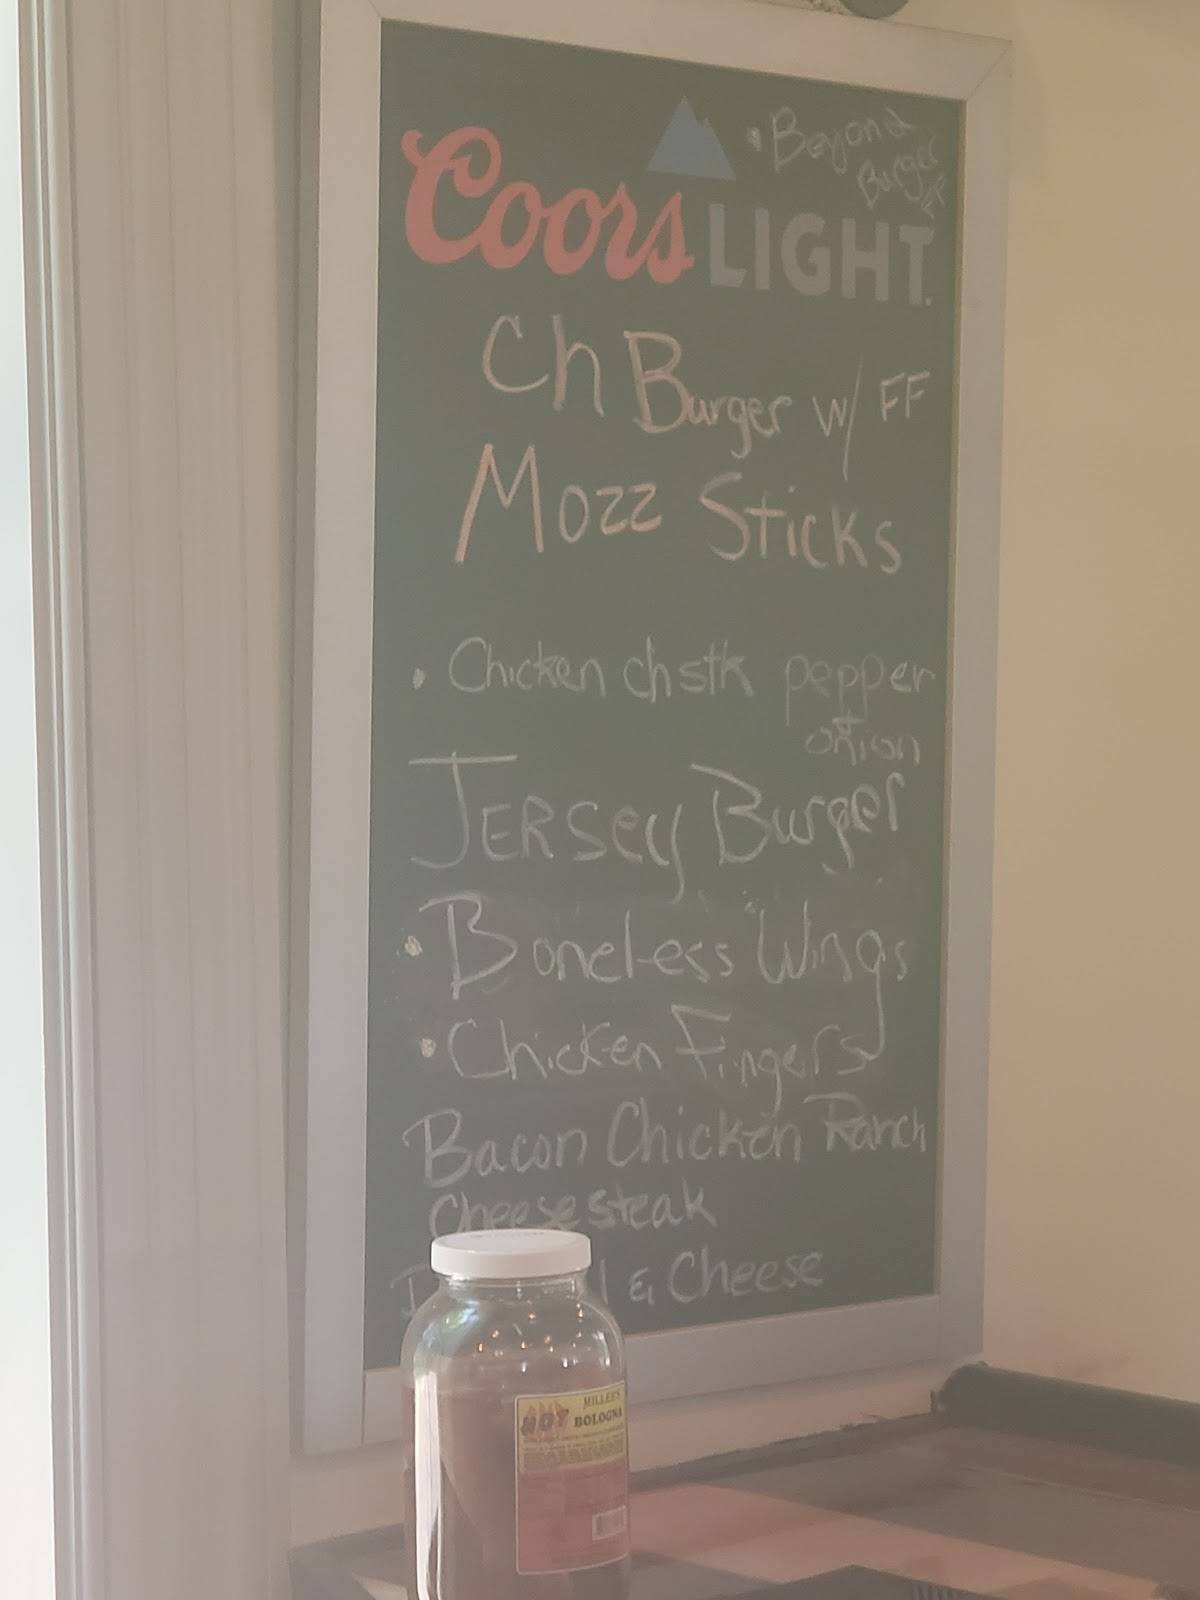 • Beyond
Burger
FF
Coors LIGHT
Ch Burger w/ FF
Mozz Sticks
• Chicken chstk pepper
onion
JERSEY Burger
• Boneless Wings
• Chicken Fingers
Bacon Chicken Ranch
Cheesesteak
& Cheese
MILLER'S
HOT BOLOGNA